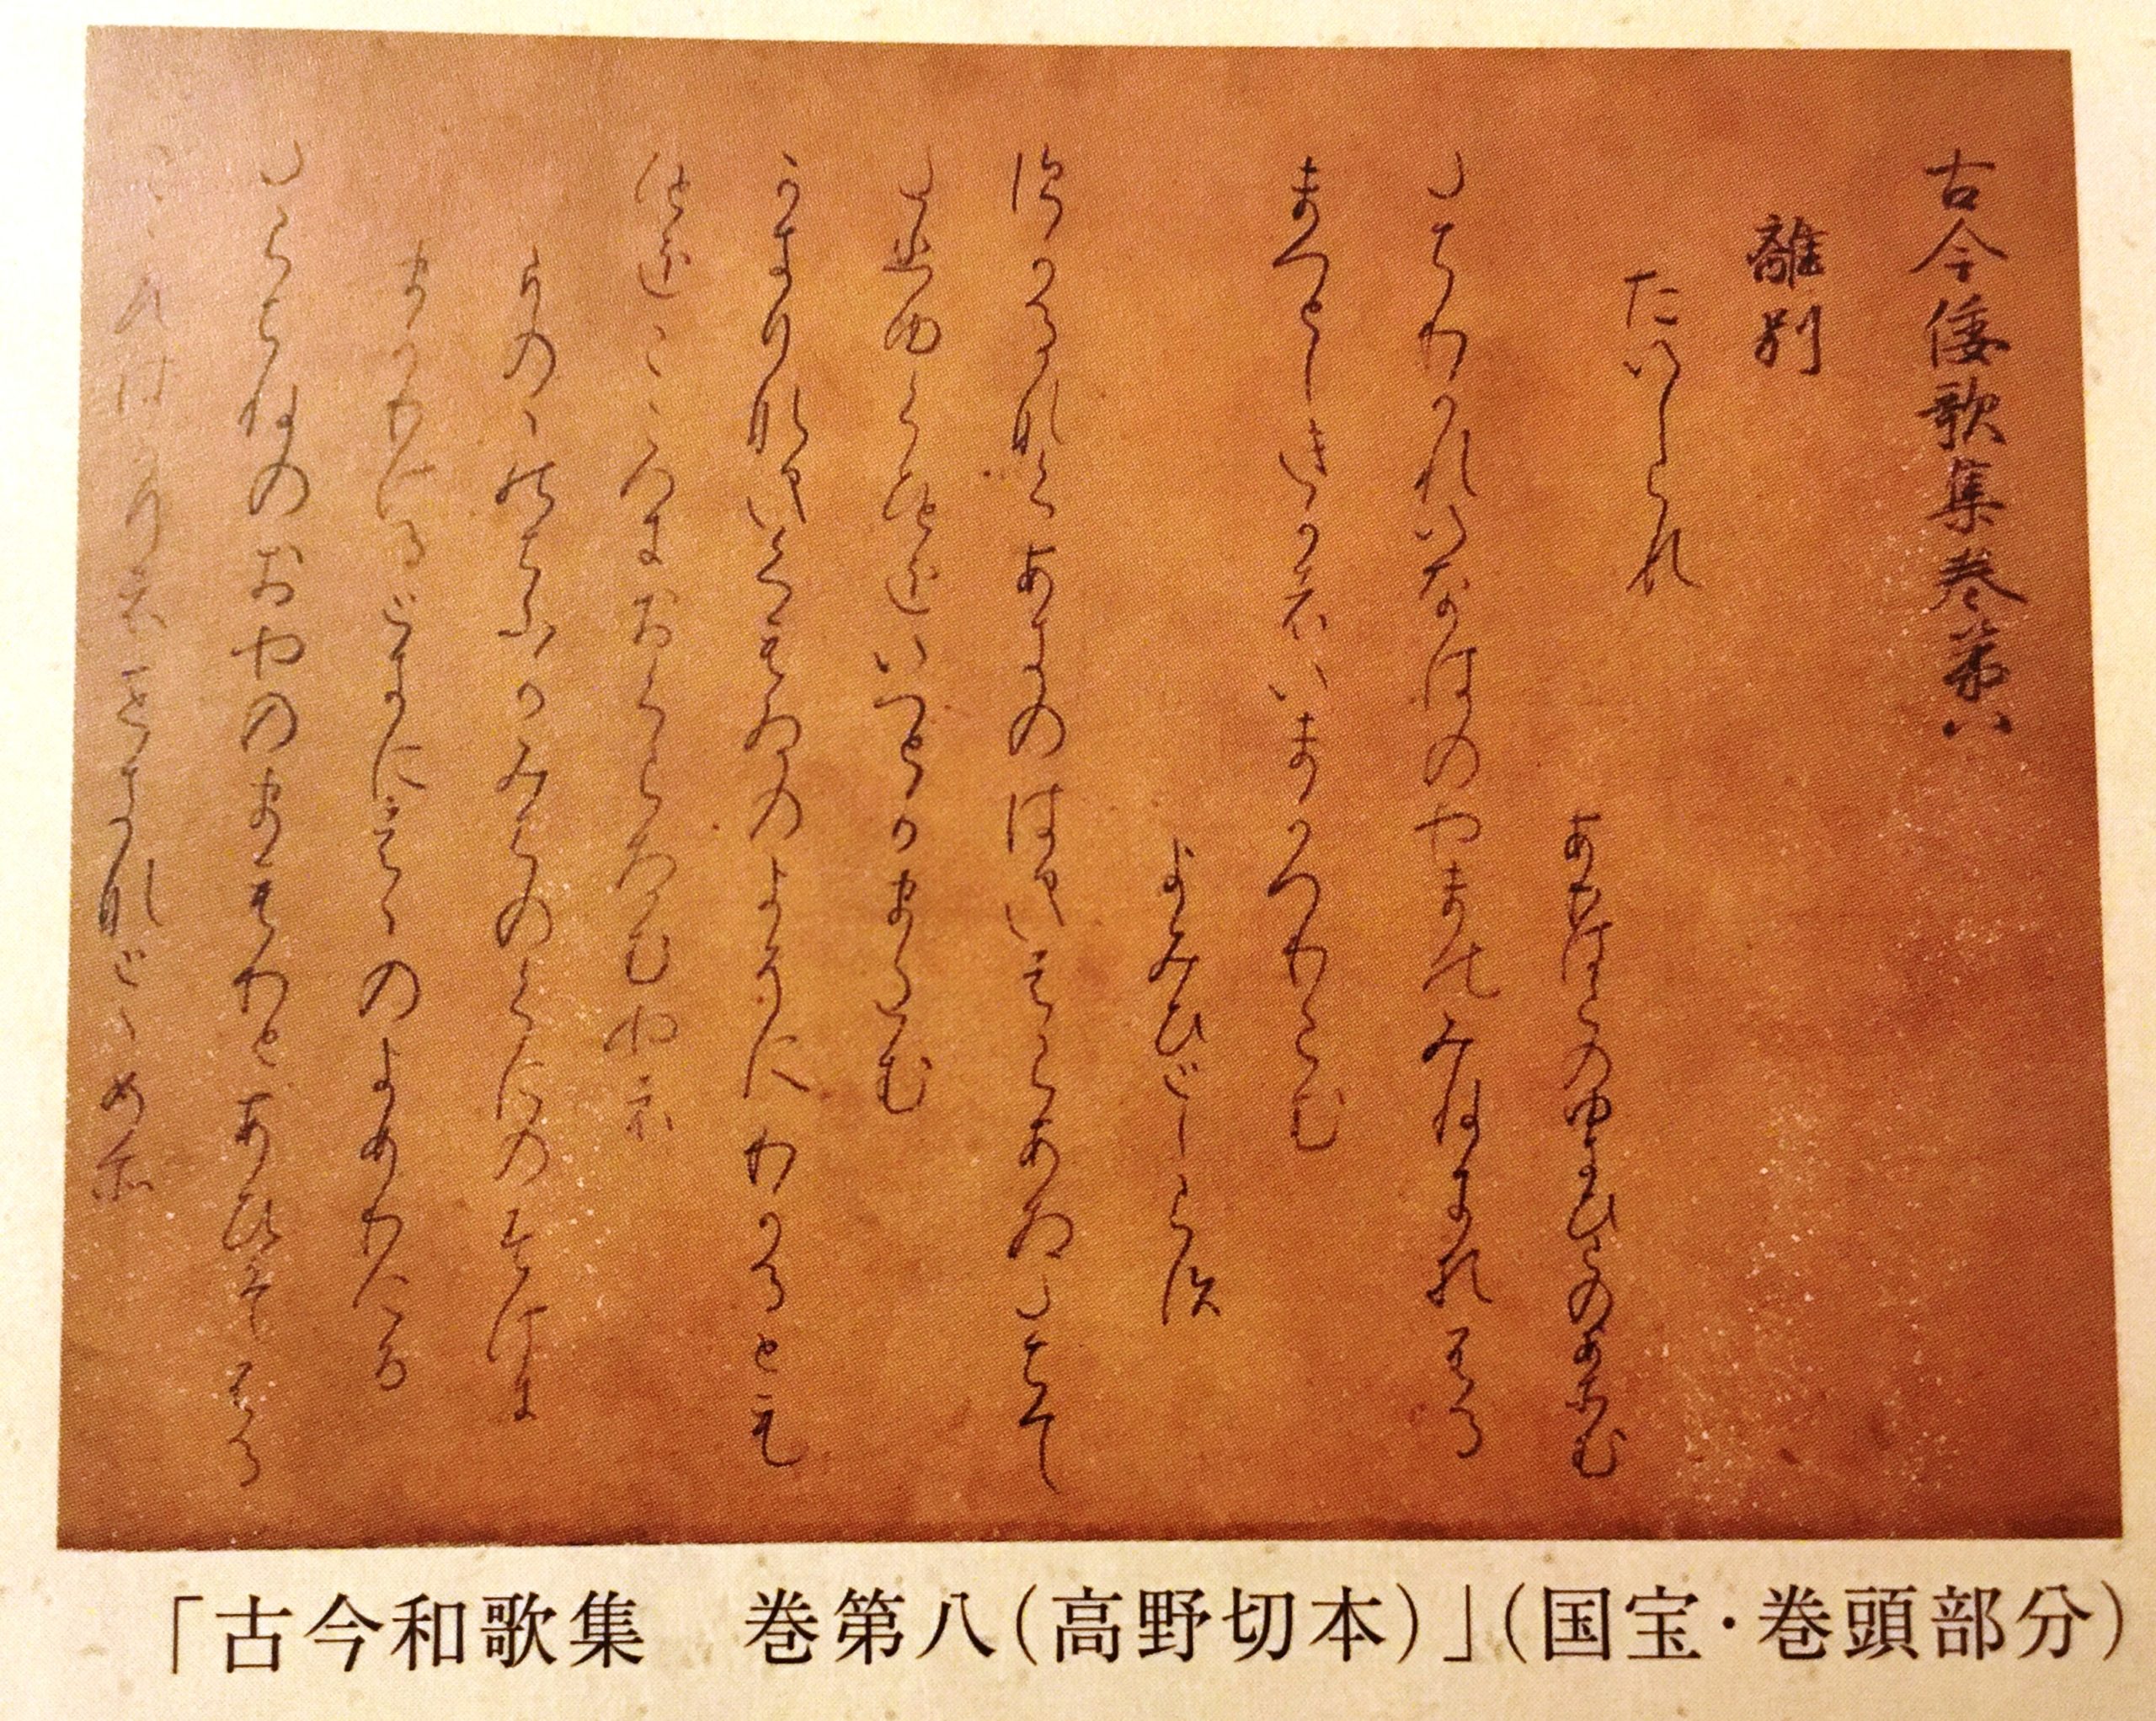 古今倭歌集巻第八
離別
たいしらす
ありはらのゆきひらのあそむ
たちわかれいなはのやまのみねにおふる
まつとしきかはいまかへりこむ
よみひとしらす
すかるなくあきのはきはらあさたちて
たひゆくひとをいつとかまたむ
かきりなきくもゐのよそにわかるとも
ひとをこゝろにおくらさむやは
をのゝちふるかみちのくのすけに
まかりけるときにはゝのよめりける
たらちねのおやのまもりとあひそふる
こゝろはかりはせきなとゝめそ
「古今和歌集　巻第八（高野切本）」（国宝・巻頭部分）